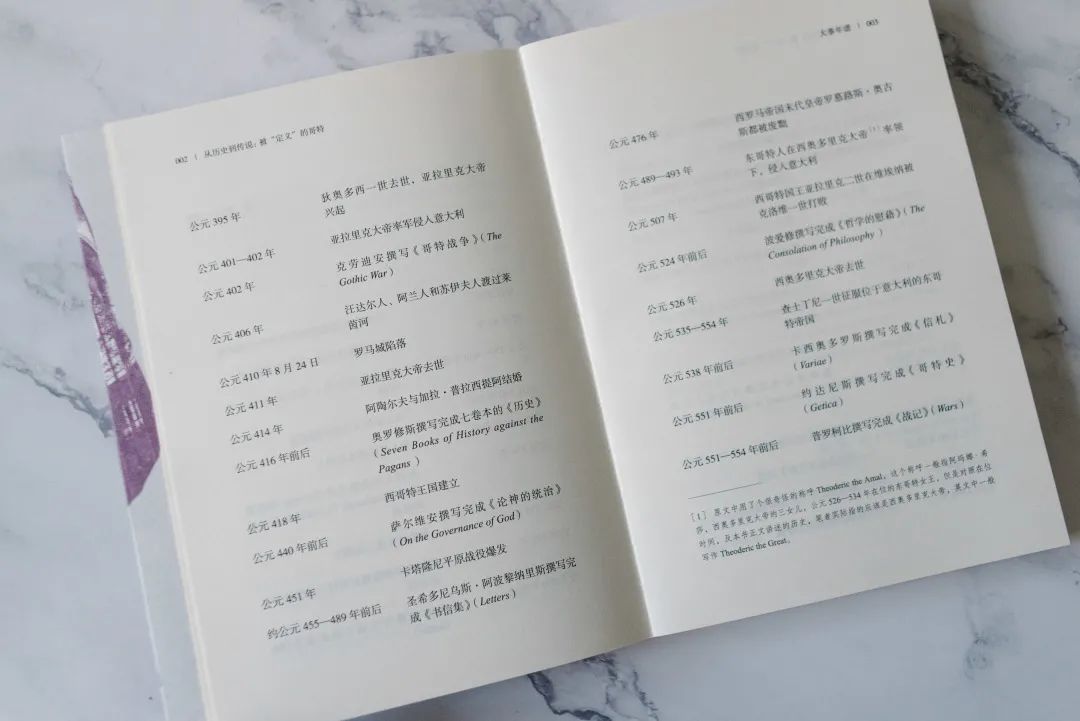 002 | 从历史到传说：被“定义”的哥特
公元 395 年 狄奥多西一世去世，亚拉里克大帝
兴起
公元 401—402 年 亚拉里克大帝率军侵入意大利
公元 402 年 克劳迪安撰写《哥特战争》（The
Gothic War）
公元 406 年 汪达尔人、阿兰人和苏伊夫人渡过莱
茵河
公元 410 年 8 月 24 日 罗马城陷落
公元 411 年 亚拉里克大帝去世
公元 414 年 阿陶尔夫与加拉·普拉西提阿结婚
公元 416 年前后 奥罗修斯撰写完成七卷本的《历史》
（Seven Books of History against the
Pagans）
公元 418 年 西哥特王国建立
公元 440 年前后 萨尔维安撰写完成《论神的统治》
（On the Governance of God）
公元 451 年 卡塔隆尼平原战役爆发
约公元 455—489 年前后 圣希多尼乌斯·阿波黎纳里斯撰写完
成《书信集》（Letters）
大事年谱 | 003
公元 476 年 西罗马帝国末代皇帝罗慕路斯·奥古
斯都被废黜
公元 489—493 年 东哥特人在西奥多里克大帝[1]率领
下，侵入意大利
公元 507 年 西哥特国王亚拉里克二世在维埃纳被
克洛维一世打败
公元 524 年前后 波爱修撰写完成《哲学的慰藉》（The
Consolation of Philosophy）
公元 526 年 西奥多里克大帝去世
公元 535—554 年 查士丁尼一世征服位于意大利的东哥
特帝国
公元 538 年前后 卡西奥多罗斯撰写完成《信札》
（Variae）
公元 551 年前后 约达尼斯撰写完成《哥特史》
（Getica）
公元 551—554 年前后 普罗柯比撰写完成《战记》（Wars）
[1] 原文中用了个很奇怪的称呼 Theoderic the Amal，这个称呼一般指阿玛娜·希
莎，西奥多里克大帝的三女儿，公元 526—534 年在位的东哥特女王，但是对照在位
时间，及本书正文讲述的历史，笔者实际指的应该是西奥多里克大帝，英文中一般
写作 Theodoric the Great。